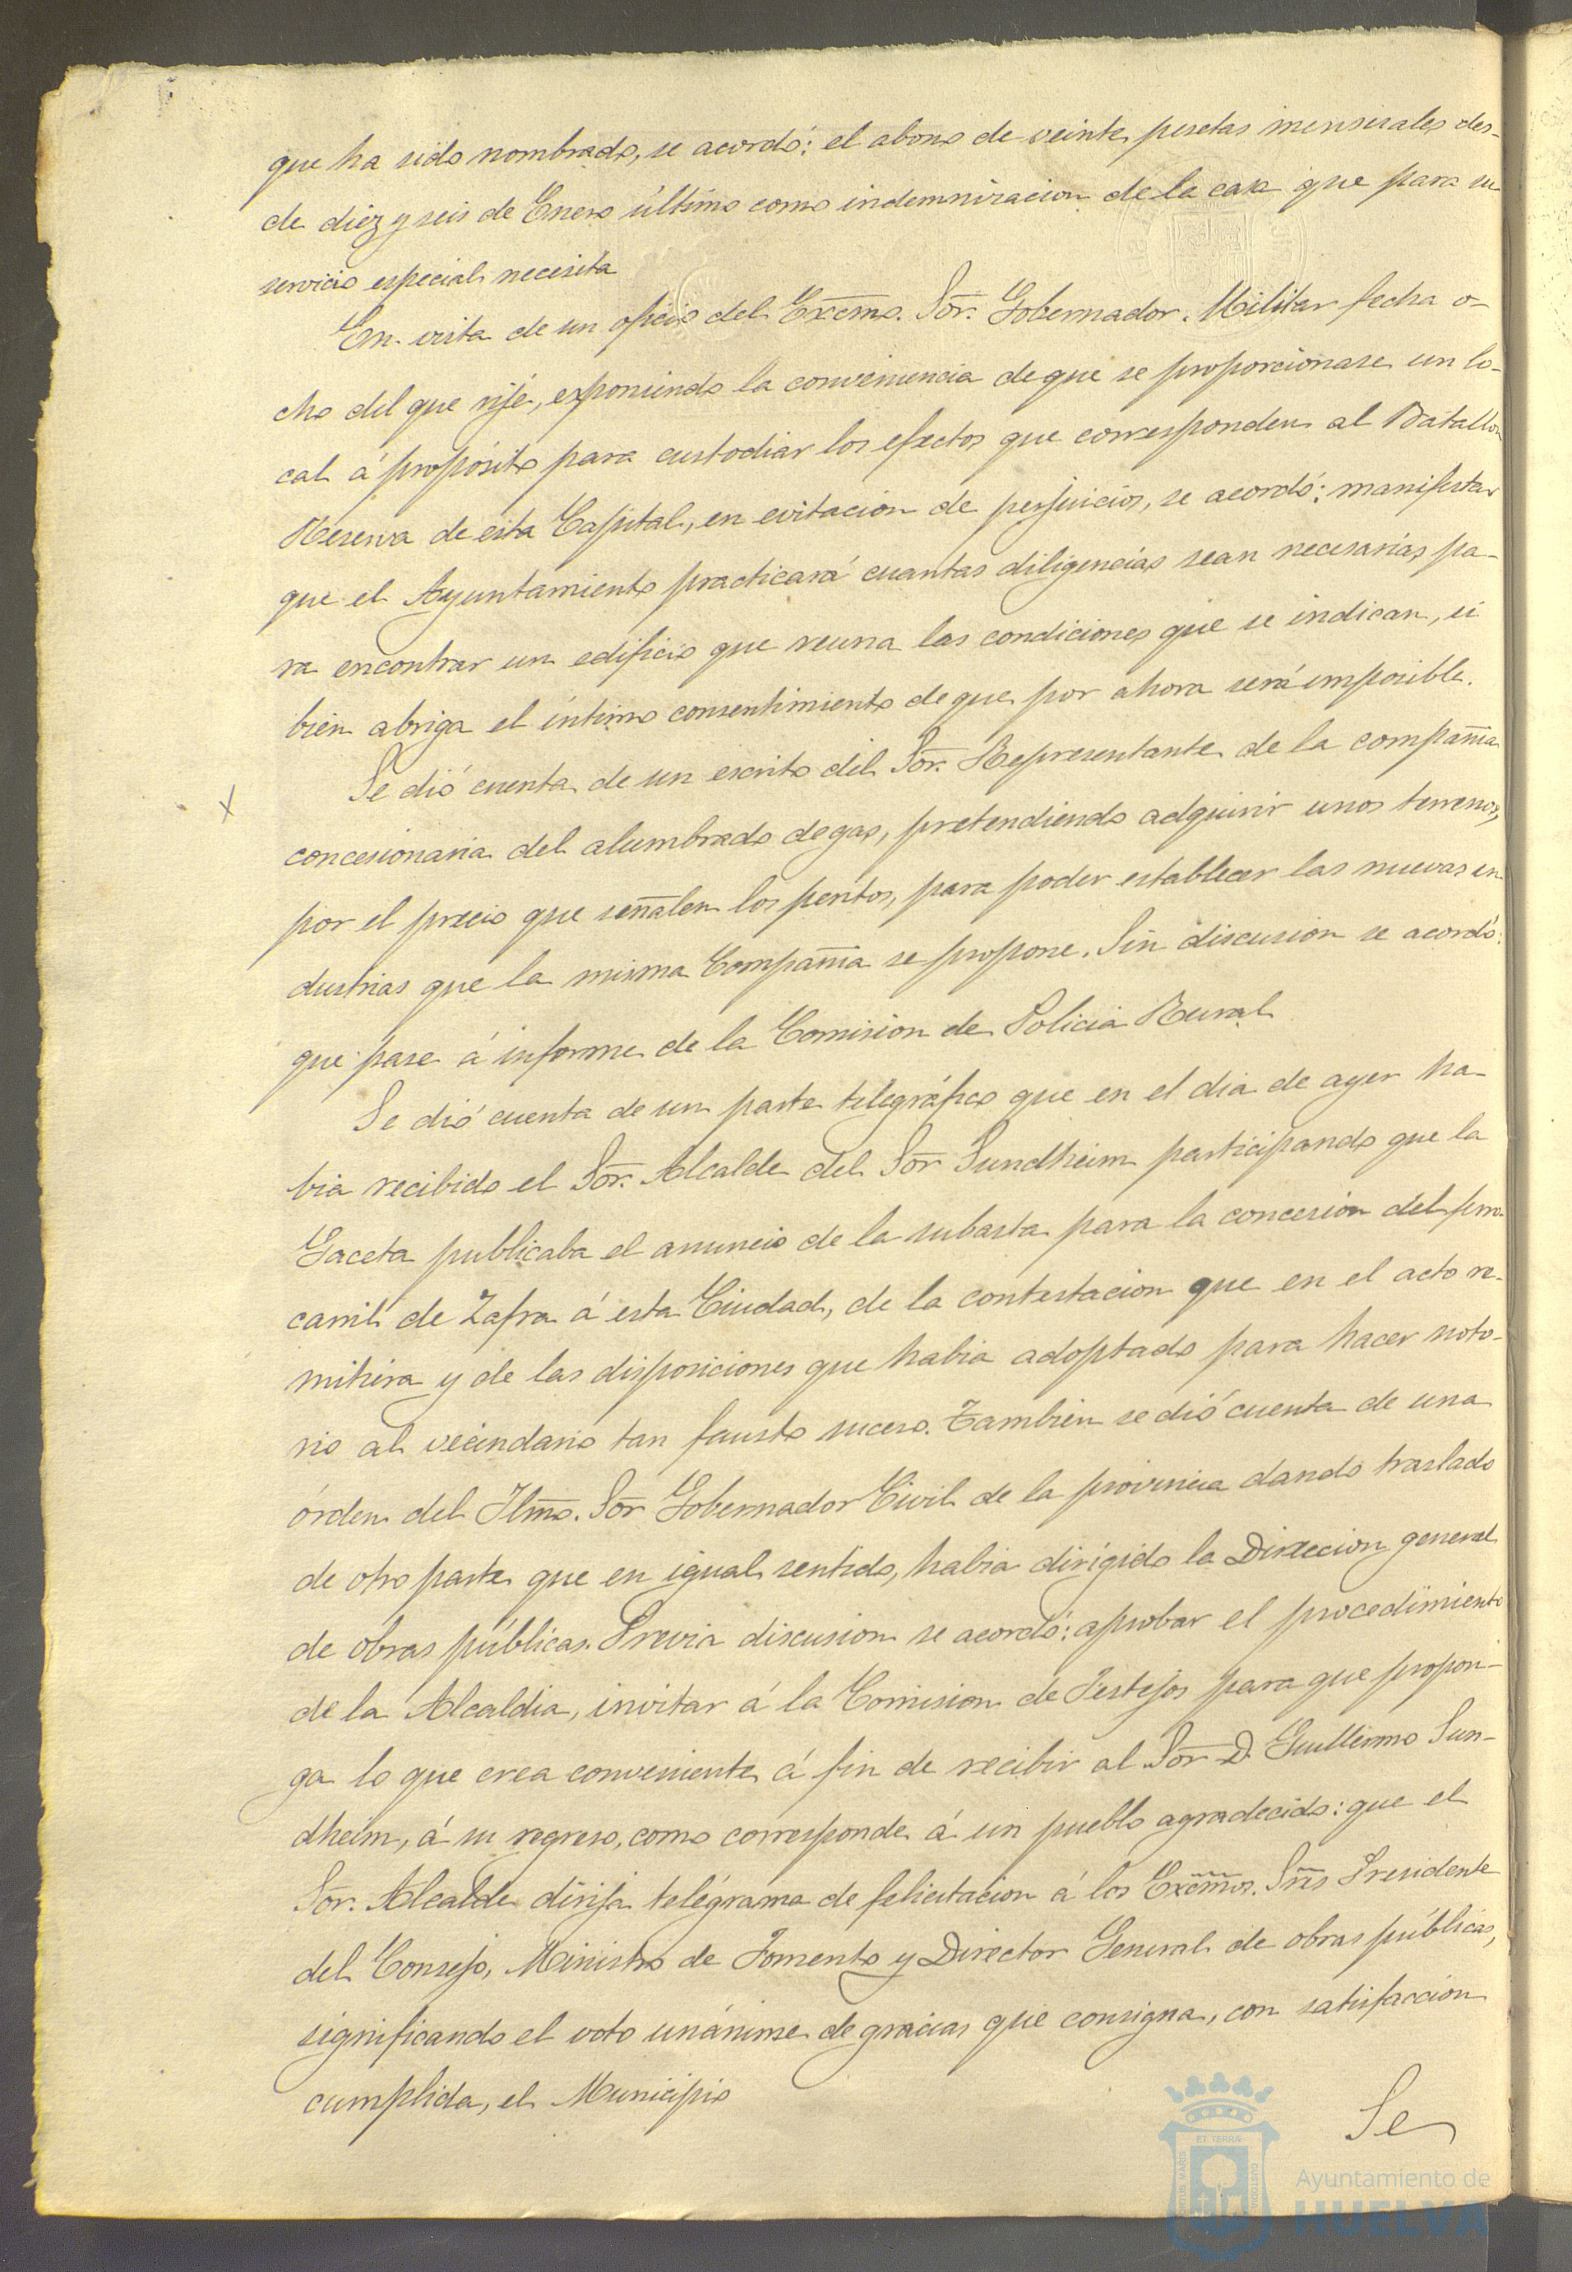 que ha sido nombrado, se acordó: el abono de veinte pesetas mensuales des-
de diez y seis de Enero último como indemnizacion de la casa que para su
servicio especial necesita
En vista de un oficio del Excmo. Sor. Gobernador Militar fecha o-
cho del que rije, exponiendo la conveniencia de que se proporcionase un lo-
cal á propósito para custodiar los efectos que corresponden al Batallon
Reserva de esta Capital, en evitacion de perjuicios, se acordó: manifestar
que el Ayuntamiento practicará cuantas diligencias sean necesarias pa-
ra encontrar un edificio que reuna las condiciones que se indican, si
bien abriga el íntimo consentimiento de que por ahora será imposible.
Se dió cuenta de un escrito del Sor. Representante de la compañia
X
concesionaria del alumbrado de gas, pretendiendo adquirir unos terrenos,
por el precio que señalen los peritos, para poder establecer las nuevas in
dustrias que la misma Compañia se propone. Sin discusion se acordó:
que pase á informe de la Comision de Policia Rural
Se dió cuenta de un parte telegráfico que en el dia de ayer ha-
bia recibido el Sor. Alcalde del Sor Sundheim participando que la
Gaceta publicaba el anuncio de la subasta para la concesion del ferro-
carril de Zafra á esta Ciudad, de la contestacion que en el acto re-
mitiera y de las disposiciones que habia adoptado para hacer noto-
rio al vecindario tan fausto suceso. Tambien se dió cuenta de una
órden del Ilmo. Sor Gobernador Civil de la provincia dando traslado
de otro parte que en igual sentido, habia dirigido la Direccion general
de obras públicas. Previa discusion se acordó: aprobar el procedimiento
de la Alcaldia, invitar á la Comision de Festejos para que propon-
ga lo que crea conveniente á fin de recibir al Sor D. Guillermo Sun-
dheim, á su regreso, como corresponde á un pueblo agradecido: que el
Sor. Alcalde dirija telégrama de felicitacion á los Excmos. Sres Presidente
del Consejo, Ministro de Fomento y Director General de obras públicas,
significando el voto unánime de gracias que consigna, con satisfaccion
cumplida, el Municipio
Se
Ayuntamiento de
HUELVA